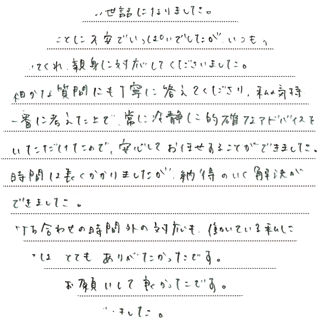 世話になりました。
ことに不安でいっぱいでしたが、いつも
てくれ、親身に対応してくださいました。
細かな質問にも丁寧に答えてくださり、私の気持
一番に考えた上で、常に冷静に的確なアドバイスを
いただけたので、安心してお任せすることができました。
時間は長くかかりましたが、納得のいく解決が
できました。
ち合わせの時間外の対応も、働いている私に
は とてもありがたかったです。
お願いして良かったです。
ました。